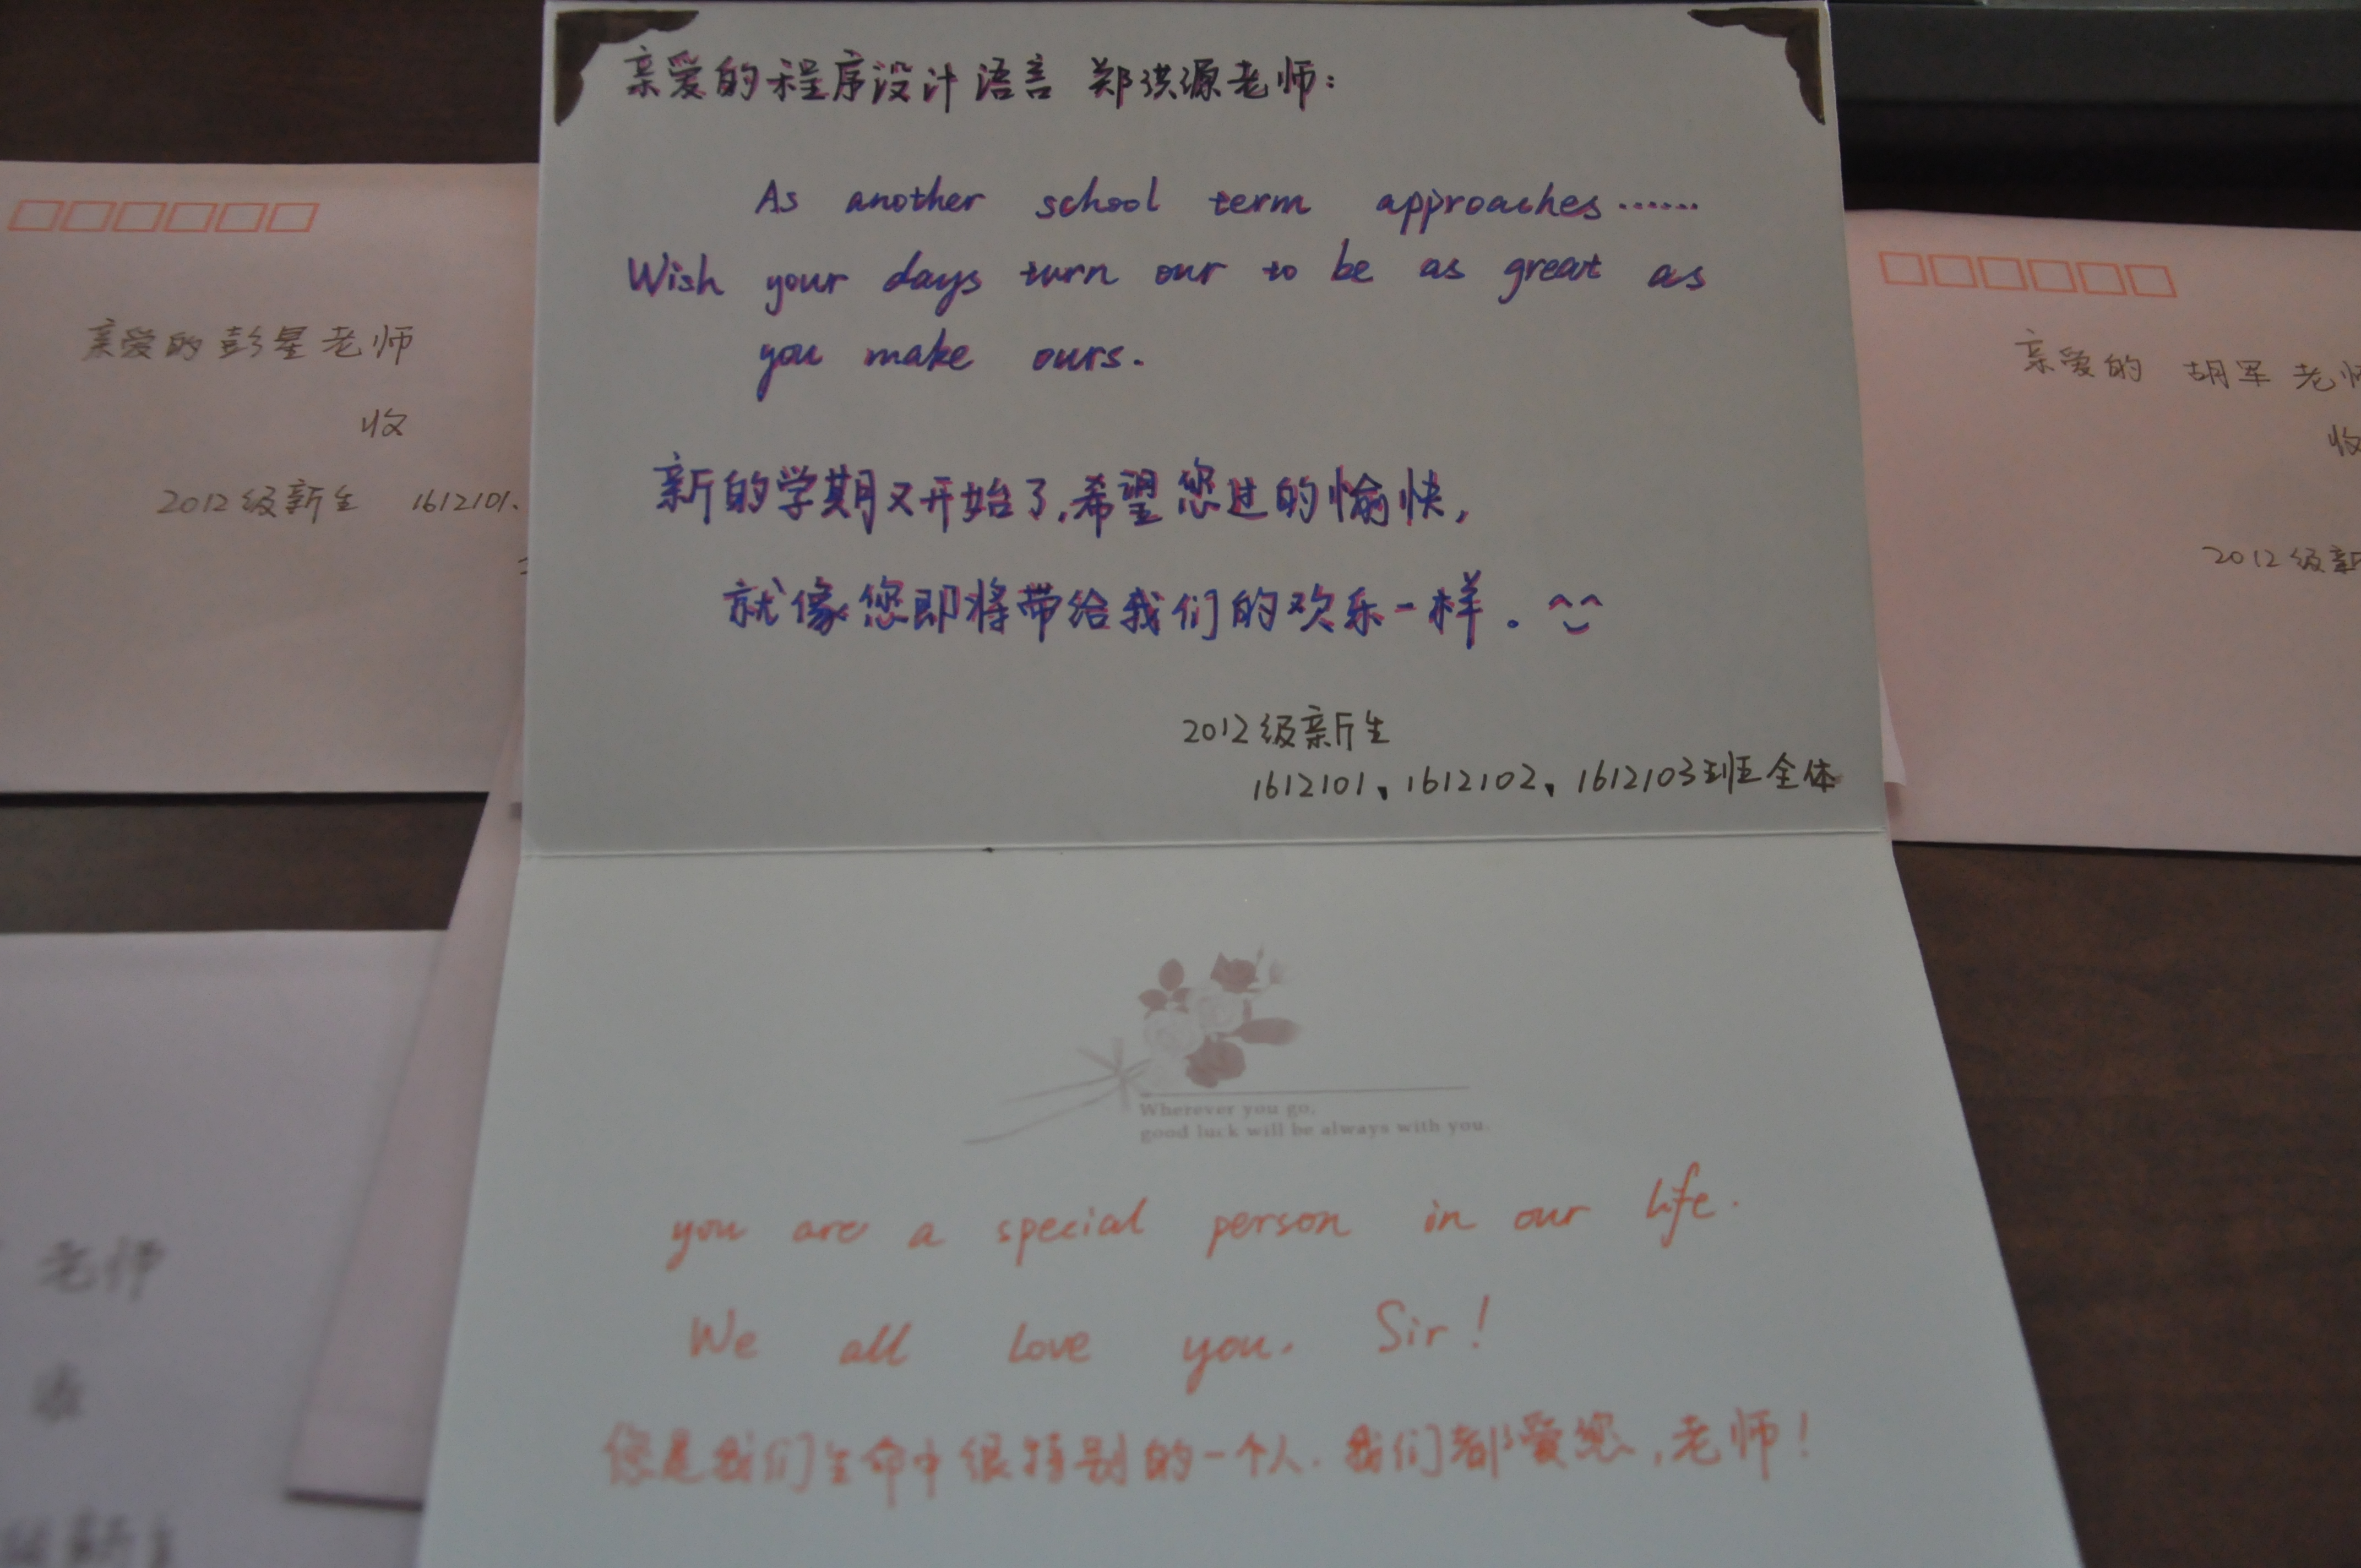 亲爱的程序设计语言 郑洪源老师：
As another school term approaches……
Wish your days turn our to be as great as
you make ours.
新的学期又开始了,希望您过的愉快,
就像您即将带给我们的欢乐一样。^^
2012级新生
1612101、1612102、1612103班全体
Wherever you go,
good luck will be always with you.
you are a special person in our life.
We all love you, Sir!
您是我们生命中很特别的一个人.我们都爱您,老师!
亲爱的彭星老师
收
2012级新生 1612101、
亲爱的 胡军 老师
收
2012级新
老师